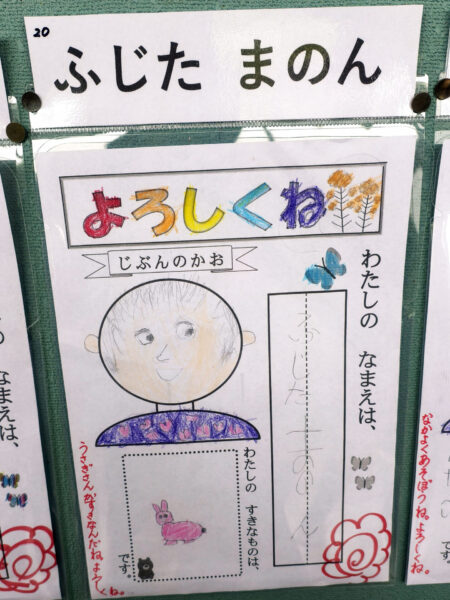 20
ふじた まのん
よろしくね
じぶんのかお
わたしの なまえは、
ふじた まのん
わたしの すきなものは、
です。
うさぎさんがすきなんだね。よろしくね。
なかよくあそぼうね。よろしくね。
なまえは、